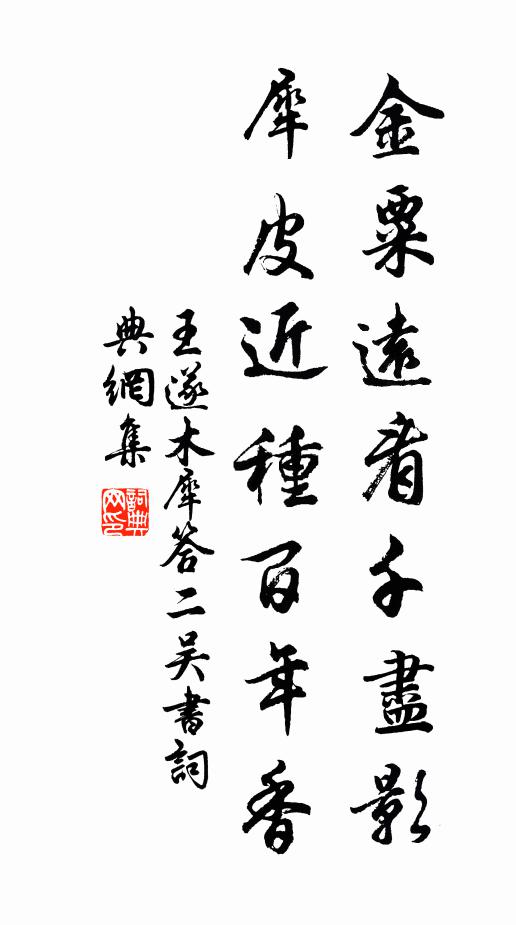 金粟遠看千盡影
犀皮近種百年香
王遂木犀答二吴書詞
典網集
詞典網印